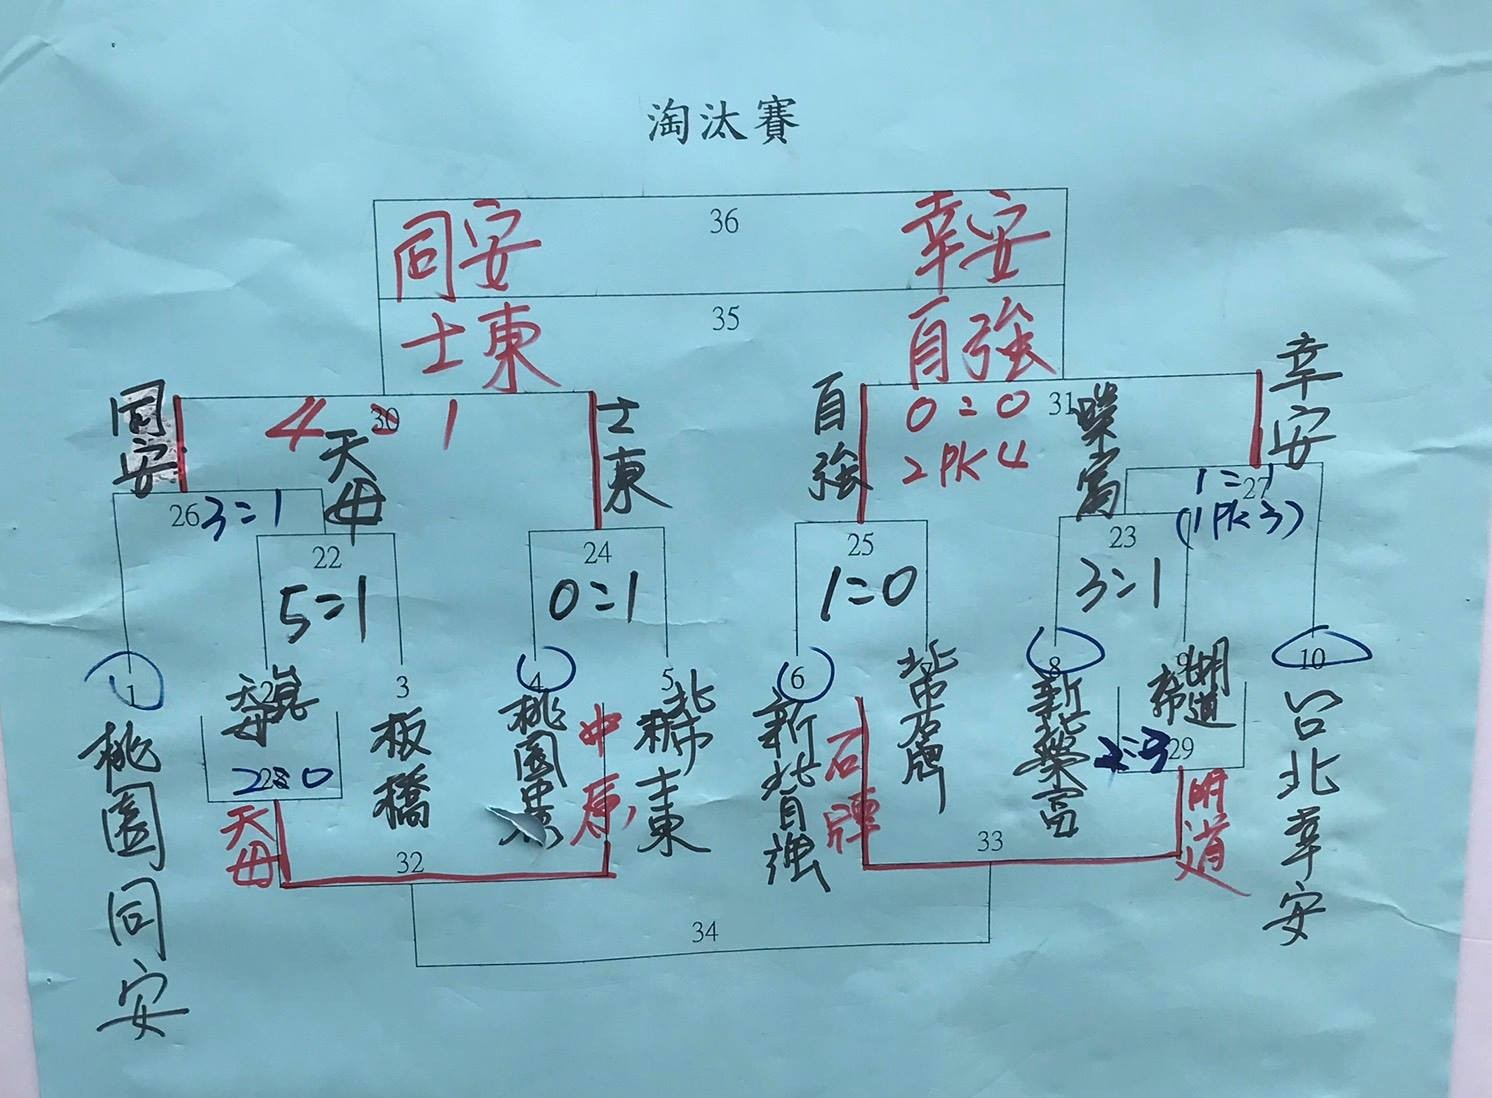 淘汰賽
同安 36 幸安
士東 35 自強
同安
4=1
30
士東
自強
0=0
2PK4
31
幸安
天母
榮富
26 3=1
22
5=1
24
0=1
25
1=0
23
3=1
1=1
27
(1PK3)
1
桃園同安
天母
3
板橋
4
桃園
中原
5
北市士東
6
新北自強
石牌
北市石牌
8
新北榮富
9
明道
10
台北幸安
28
2=0
天母
32
29
明道
33
34